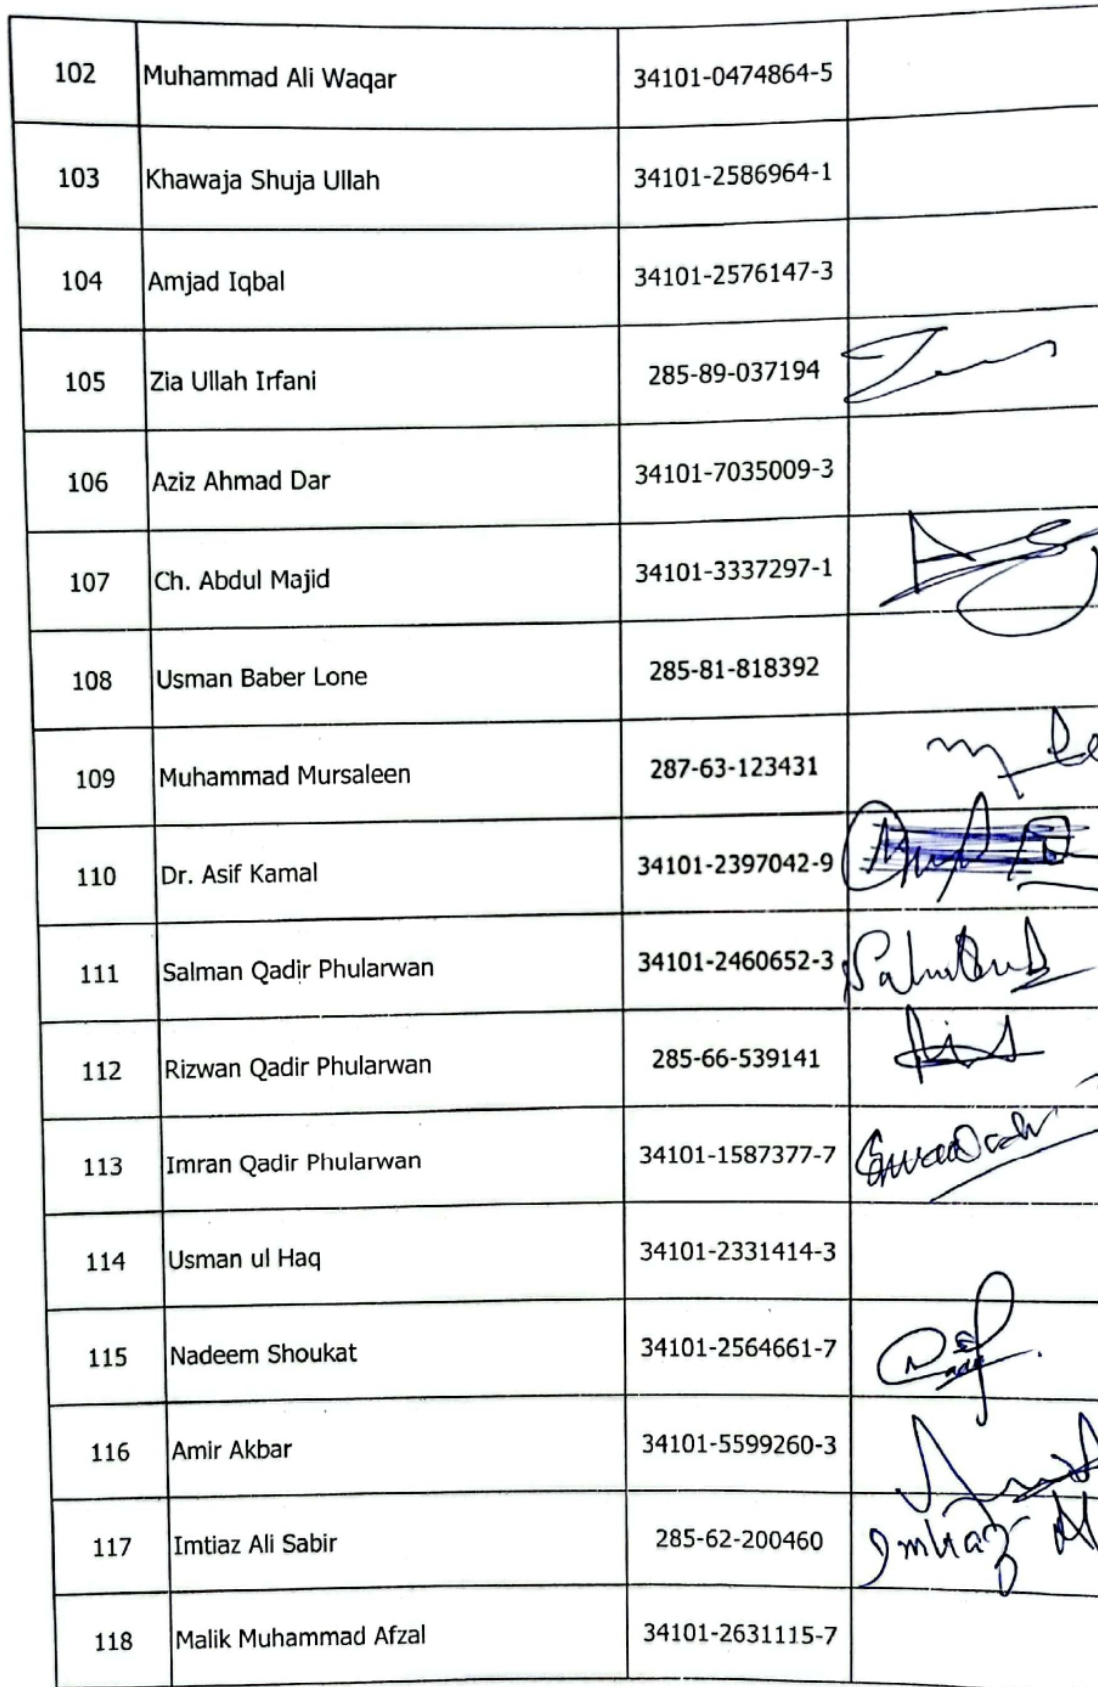 102 Muhammad Ali Waqar 34101-0474864-5
103 Khawaja Shuja Ullah 34101-2586964-1
104 Amjad Iqbal 34101-2576147-3
105 Zia Ullah Irfani 285-89-037194
106 Aziz Ahmad Dar 34101-7035009-3
107 Ch. Abdul Majid 34101-3337297-1
108 Usman Baber Lone 285-81-818392
109 Muhammad Mursaleen 287-63-123431
110 Dr. Asif Kamal 34101-2397042-9
111 Salman Qadir Phularwan 34101-2460652-3
112 Rizwan Qadir Phularwan 285-66-539141
113 Imran Qadir Phularwan 34101-1587377-7
114 Usman ul Haq 34101-2331414-3
115 Nadeem Shoukat 34101-2564661-7
116 Amir Akbar 34101-5599260-3
117 Imtiaz Ali Sabir 285-62-200460 Imtiaz
118 Malik Muhammad Afzal 34101-2631115-7